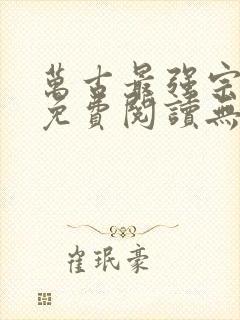 萬古最強宗
免費閱讀無
崔珉豪